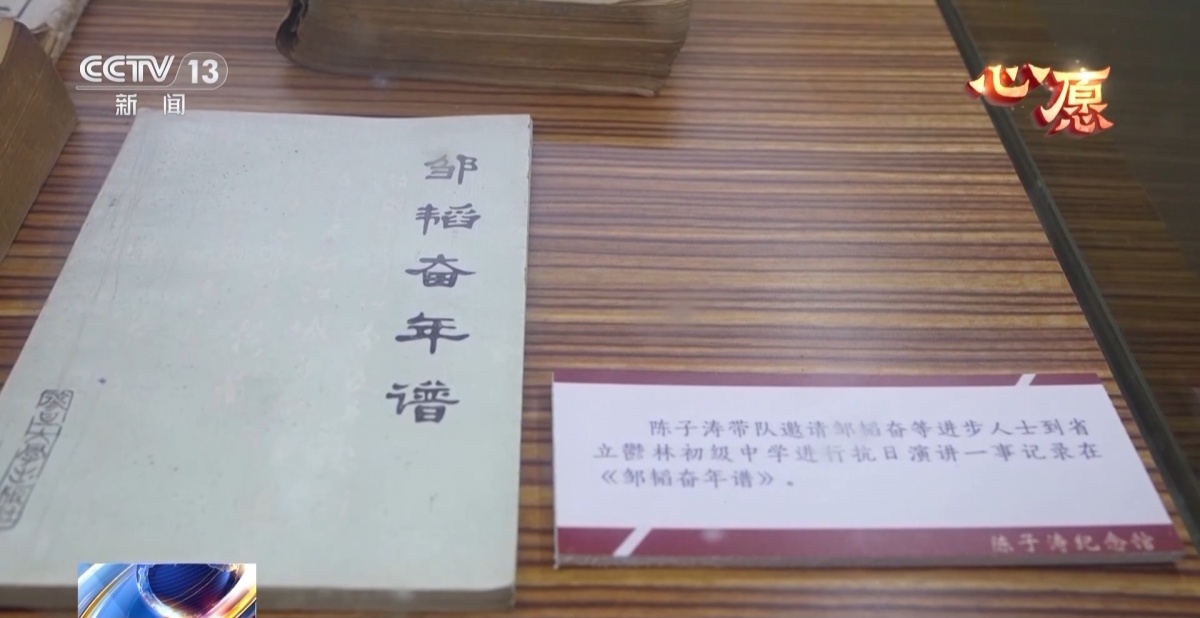 CCTV 13
新闻
心愿
邹韬奋年谱
陈子涛带队邀请邹韬奋等进步人士到省
立鬱林初级中学进行抗日演讲一事记录在
《邹韬奋年谱》。
陈子涛纪念馆